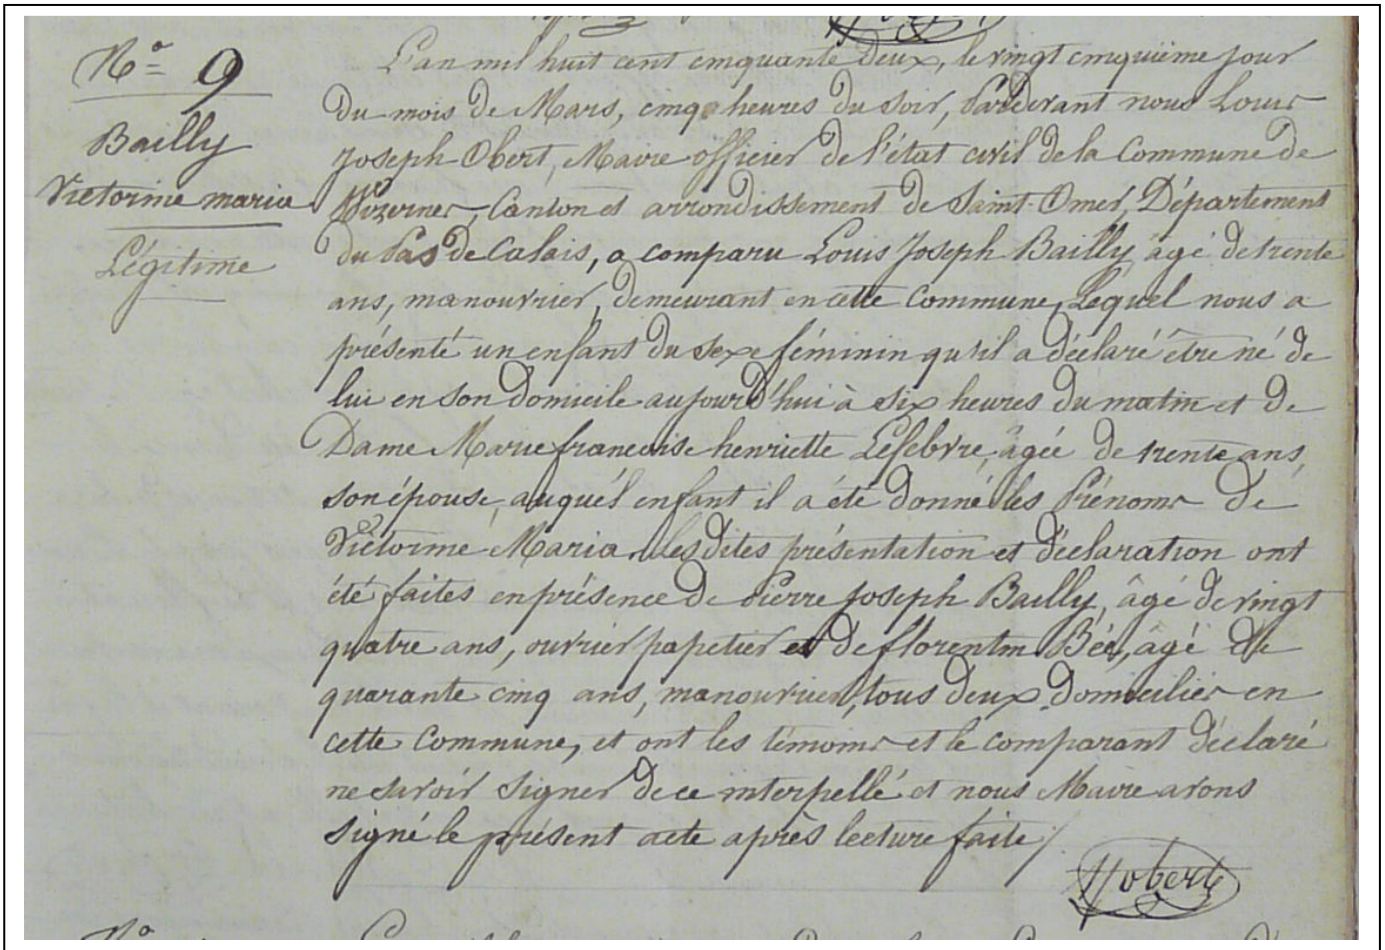 N° 9
Bailly
Victorine maria
Légitime
L'an mil huit cent cinquante deux, le vingt cinquième jour
du mois de Mars, cinq heures du soir, Pardevant nous Louis
Joseph Obert, Maire officier de l'état civil de la Commune de
Wizernes, Canton et arrondissement de Saint-Omer, Département
du Pas de Calais, a comparu Louis Joseph Bailly, âgé de trente
ans, manouvrier, demeurant en cette Commune, Lequel nous a
présenté un enfant du sexe féminin qu'il a déclaré être né de
lui en son domicile aujourd'hui à six heures du matin et de
Dame Marie francoise henriette Lefebvre, âgée de trente ans,
son épouse, auquel enfant il a été donné les Prénoms de
Victorine Maria, les dites présentation et déclaration ont
été faites en présence de Pierre Joseph Bailly, âgé de vingt
quatre ans, ouvrier papetier et de florentin Bée, âgé de
quarante cinq ans, manouvrier, tous deux domiciliés en
cette Commune, et ont les témoins et le comparant déclaré
ne savoir signer de ce interpellé et nous Maire avons
signé le présent acte après lecture faite/
N°